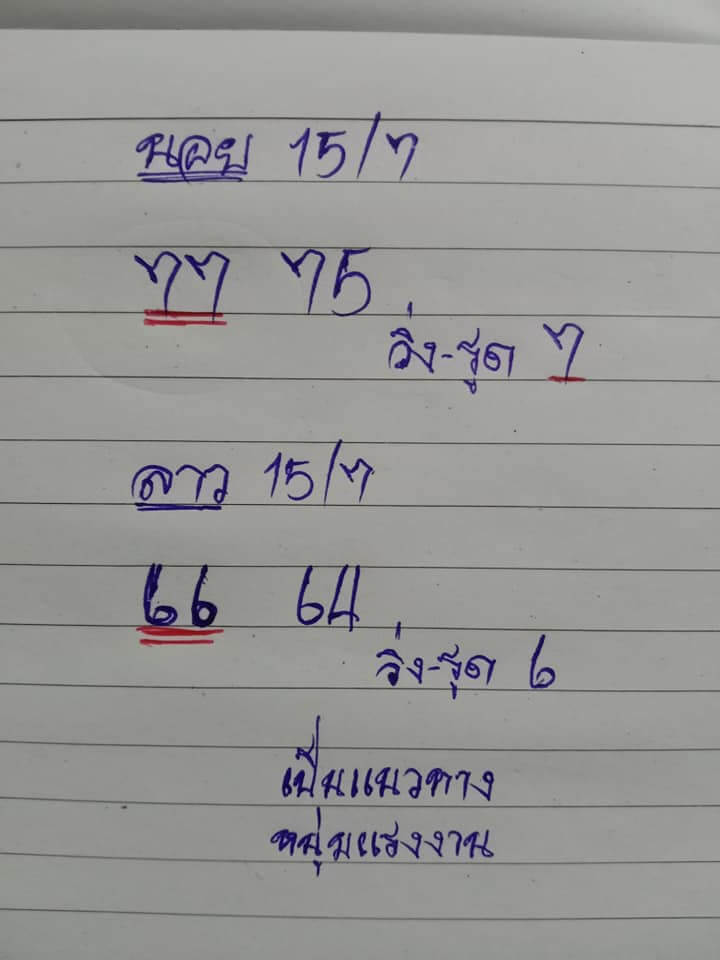 นอย 15/7
77 75
วิ่ง-รูด 7
ลาว 15/7
66 64
วิ่ง-รูด 6
เป็นแนวทาง
หนุ่มแรงงาน